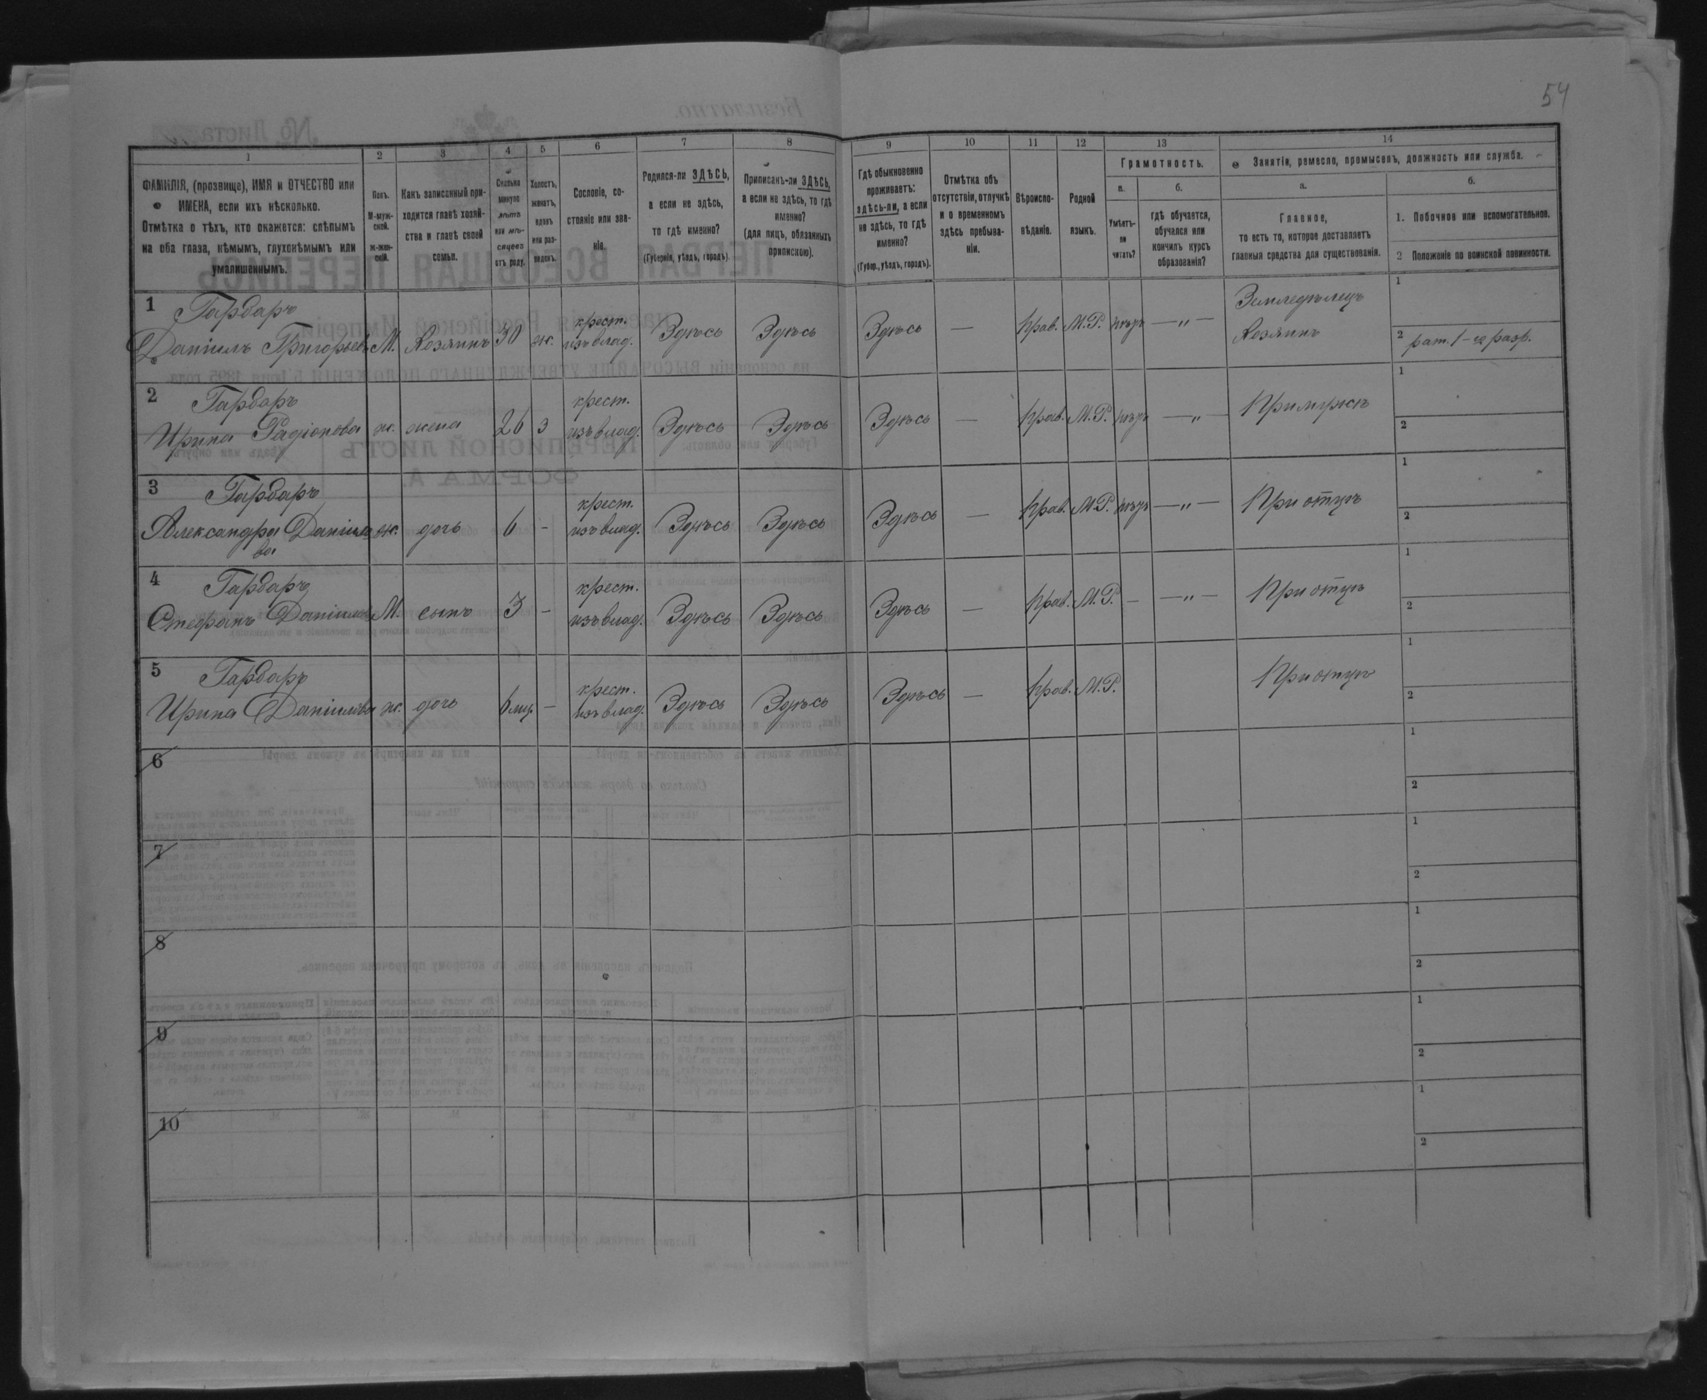 54
1
2
3
4
5
6
7
8
9
10
11
12
13
14
ФАМИЛІЯ, (прозвище), ИМЯ и ОТЧЕСТВО или
ИМЕНА, если ихъ нѣсколько.
Отмѣтка о тѣхъ, кто окажется: слѣпымъ
на оба глаза, нѣмымъ, глухонѣмымъ или
умалишеннымъ.
Полъ.
М-муж-
ской.
ж-жен-
скій.
Какъ записанный при-
ходится главѣ хозяй-
ства и главѣ своей
семьи.
Сколько
минуло
лѣтъ
или мѣ-
сяцевъ
отъ роду.
Холостъ,
женатъ,
вдовъ
или раз-
веденъ.
Сословіе, со-
стояніе или зва-
ніе.
Родился-ли ЗДѢСЬ,
а если не здѣсь,
то гдѣ именно?
(Губернія, уѣздъ, городъ).
Приписанъ-ли ЗДѢСЬ,
а если не здѣсь, то гдѣ
именно?
(для лицъ, обязанныхъ
припискою).
Гдѣ обыкновенно
проживаетъ:
здѣсь-ли, а если
не здѣсь, то гдѣ
именно?
(Губер., уѣздъ, городъ).
Отмѣтка объ
отсутствіи, отлучкѣ
и о временномъ
здѣсь пребыва-
ніи.
Вѣроиспо-
вѣданіе.
Родной
языкъ.
Грамотность.
а.
Умѣетъ-
ли
читать?
б.
гдѣ обучается,
обучался или
кончилъ курсъ
образованія?
Занятіе, ремесло, промыселъ, должность или служба.
а.
Главное,
то есть то, которое доставляетъ
главныя средства для существованія.
б.
1. Побочное или вспомогательное.
2 Положеніе по воинской повинности.
1 Гарбаръ
Даніилъ Григорьевъ М. Хозяинъ 30 ж. крест. изъ влад. Здѣсь Здѣсь Здѣсь — прав. М.Р. — „ — Земледѣлецъ
Хозяинъ
1
2 рат. 1-го разр.
2 Гарбаръ
Ирина Радіонова ж. жена 26 з крест. изъ влад. Здѣсь Здѣсь Здѣсь — прав. М.Р. — „ — При мужѣ
1
2
3 Гарбаръ
Александра Данііло
ва ж. дочь 6 - крест. изъ влад. Здѣсь Здѣсь Здѣсь — прав. М.Р. — „ — При отцѣ
1
2
4 Гарбаръ
Стефанъ Даніиловъ М. сынъ 3 - крест. изъ влад. Здѣсь Здѣсь Здѣсь — прав. М.Р. - — „ — При отцѣ
1
2
5 Гарбаръ
Ирина Даніилова ж. дочь 6 мц. - крест. изъ влад. Здѣсь Здѣсь Здѣсь — прав. М.Р. При отцѣ
1
2
6
1
2
7
1
2
8
1
2
9
1
2
10
1
2